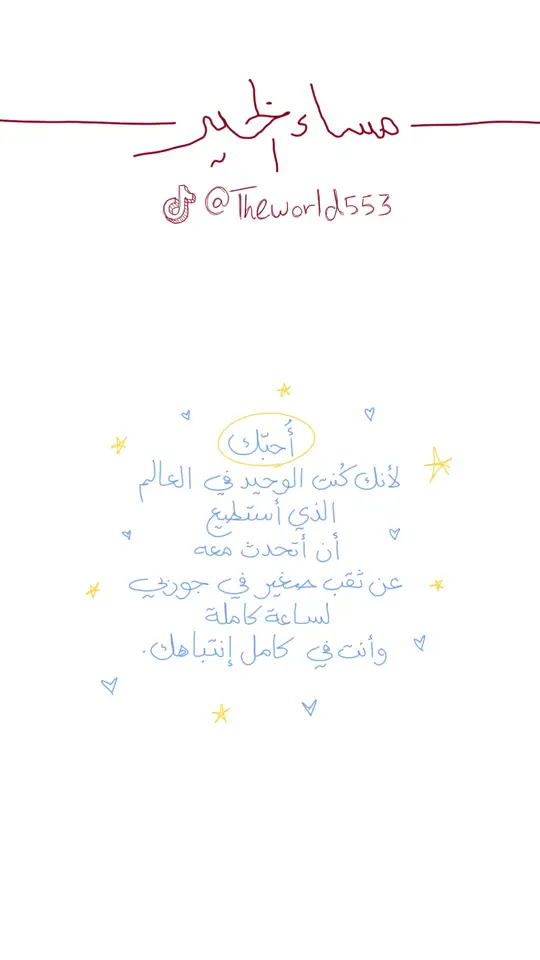 مساء الخير
@Theworld553
أُحبّك
لأنك كُنت الوحيد في العالم
الذي أستطيع
أن أتحدث معه
عن ثقب صغير في جوربي
لساعة كاملة
وأنت في كامل إنتباهك.